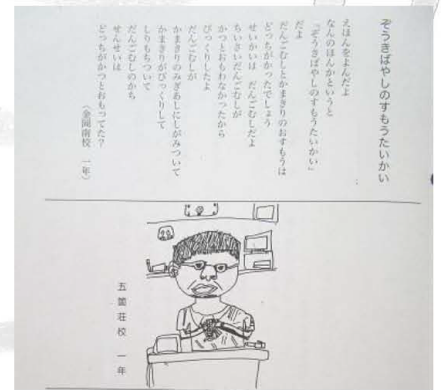 ぞうきばやしのすもうたいかい
えほんをよんだよ
なんのほんかというと
「ぞうきばやしのすもうたいかい」
だよ
だんごむしとかまきりのおすもうは
どっちがかったでしょう
せいかいは　だんごむしだよ
ちいさいだんごむしが
かつとおもわなかったから
びっくりしたよ
だんごむしが
かまきりのみぎあしにしがみついて
かまきりがびっくりして
しりもちついて
だんごむしのかち
せんせいは
どっちがかつとおもってた？
（金岡南校　一年）
五箇荘校　一年